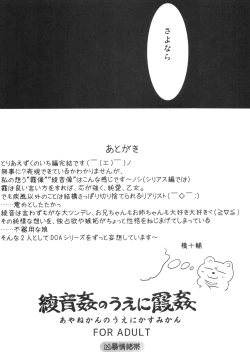 さよなら
あとがき
とりあえずくのいち編完結です(￣(エ)￣)ノ
無事に?表現できているかわかりませんが、
私の想う"霞像""綾音像"はこんな感じです～ノシ(シリアス編では)
霞は良い言い方をすれば、芯が強く、純愛、乙女。
でも疾風以外のことは結構さっぱり切り捨てられるリアリスト(￣◇￣;)
……驚めとしたたかっ
綾音は言わずもがな大ツンデレ、お兄ちゃんもお姉ちゃんも大好き大好きぐ(≧∇≦)
その純情な想いを、独占欲や嫉妬がちょっとだけ性格をねじまげてしまっている
……不器用な娘
そんな2人としてDOAシリーズをずっと妄想しています～
楝十輔
綾音姦のうえに霞姦
あやねかんのうえにかすみかん
FOR ADULT
凶暴情緒帯